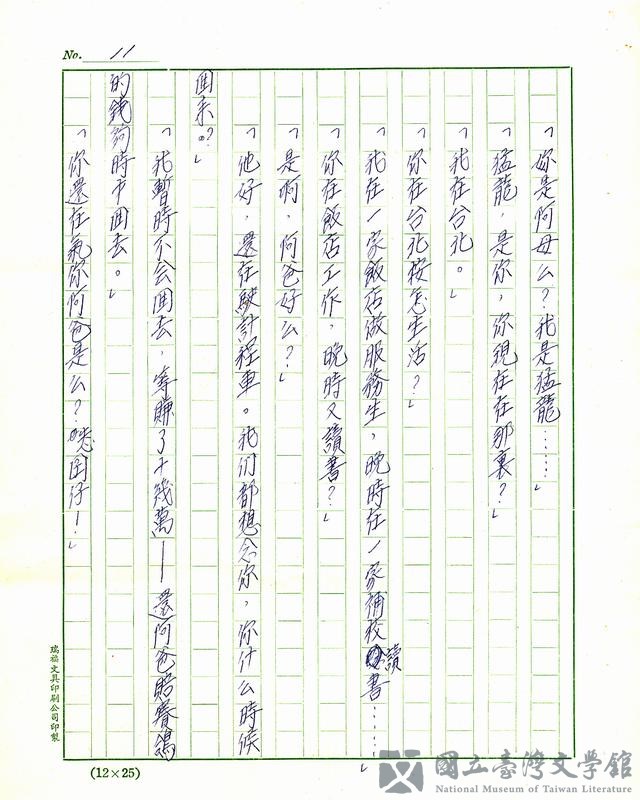 No. 11
「妳是阿母么？我是猛龍……」
「猛龍，是你，你現在在那裏？」
「我在台北。」
「你在台北按怎生活？」
「我在一家飯店做服務生，晚時在一家補校讀書……」
「你在飯店工作，晚時又讀書？」
「是啊，阿爸好么？」
「他好，還在駛計程車。我们都想念你，你什么時候
囬來？？」
「我暫時不会囬去，等賺了十幾萬──還阿爸賠賽鴿
的錢夠時才囬去。」
「你還在氣你阿爸是么？憨囝仔！」
瑞福文具印刷公司印製
(12×25)
國立臺灣文學館
National Museum of Taiwan Literature